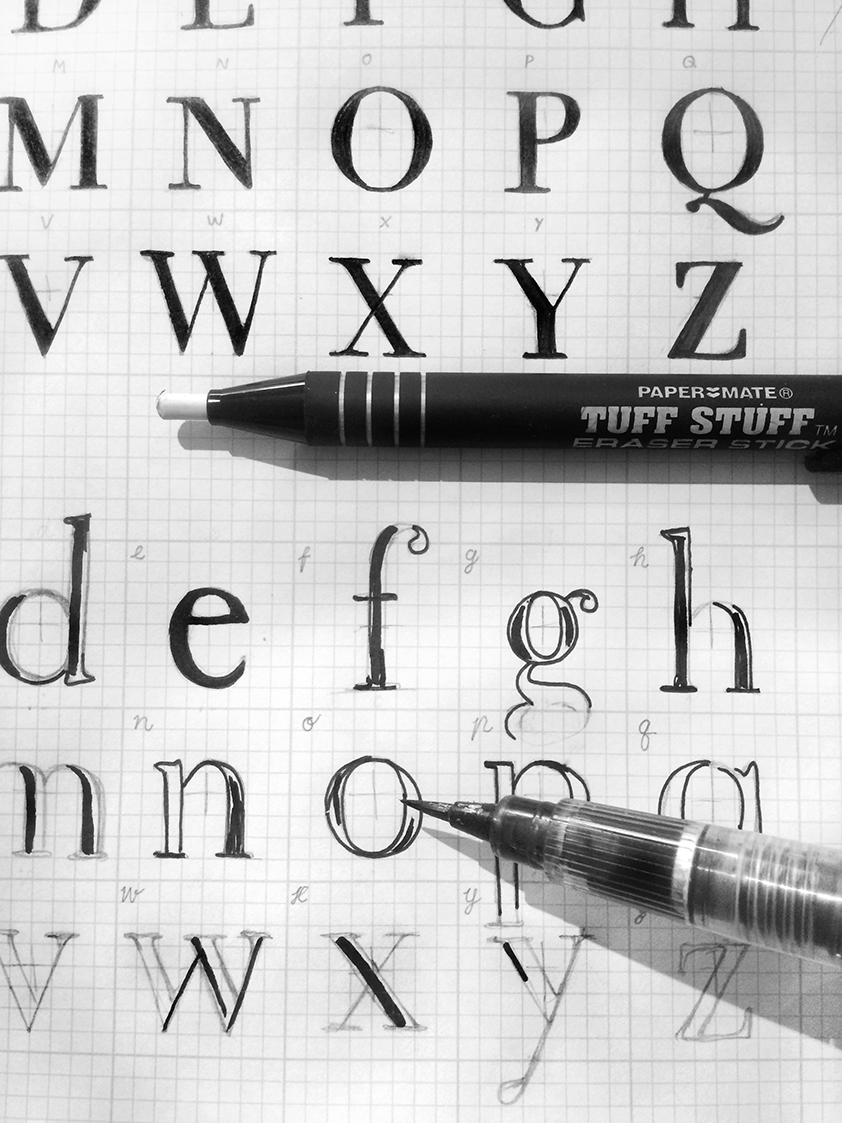 M N O P Q
M N O P Q
V W X Y
V W X Y Z
PAPER MATE®
TUFF STUFF™
ERASER STICK
e f g h
d e f g h
n o p q
m n o p q
w x y
v w x y z